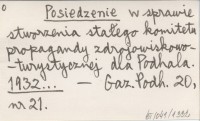 Posiedzenie w sprawie
stworzenia stałego komitetu
propagandy zdrojowiskowo-
-turystycznej dla Podhala.
1932... — Gaz. Podh. 20,
nr 21.